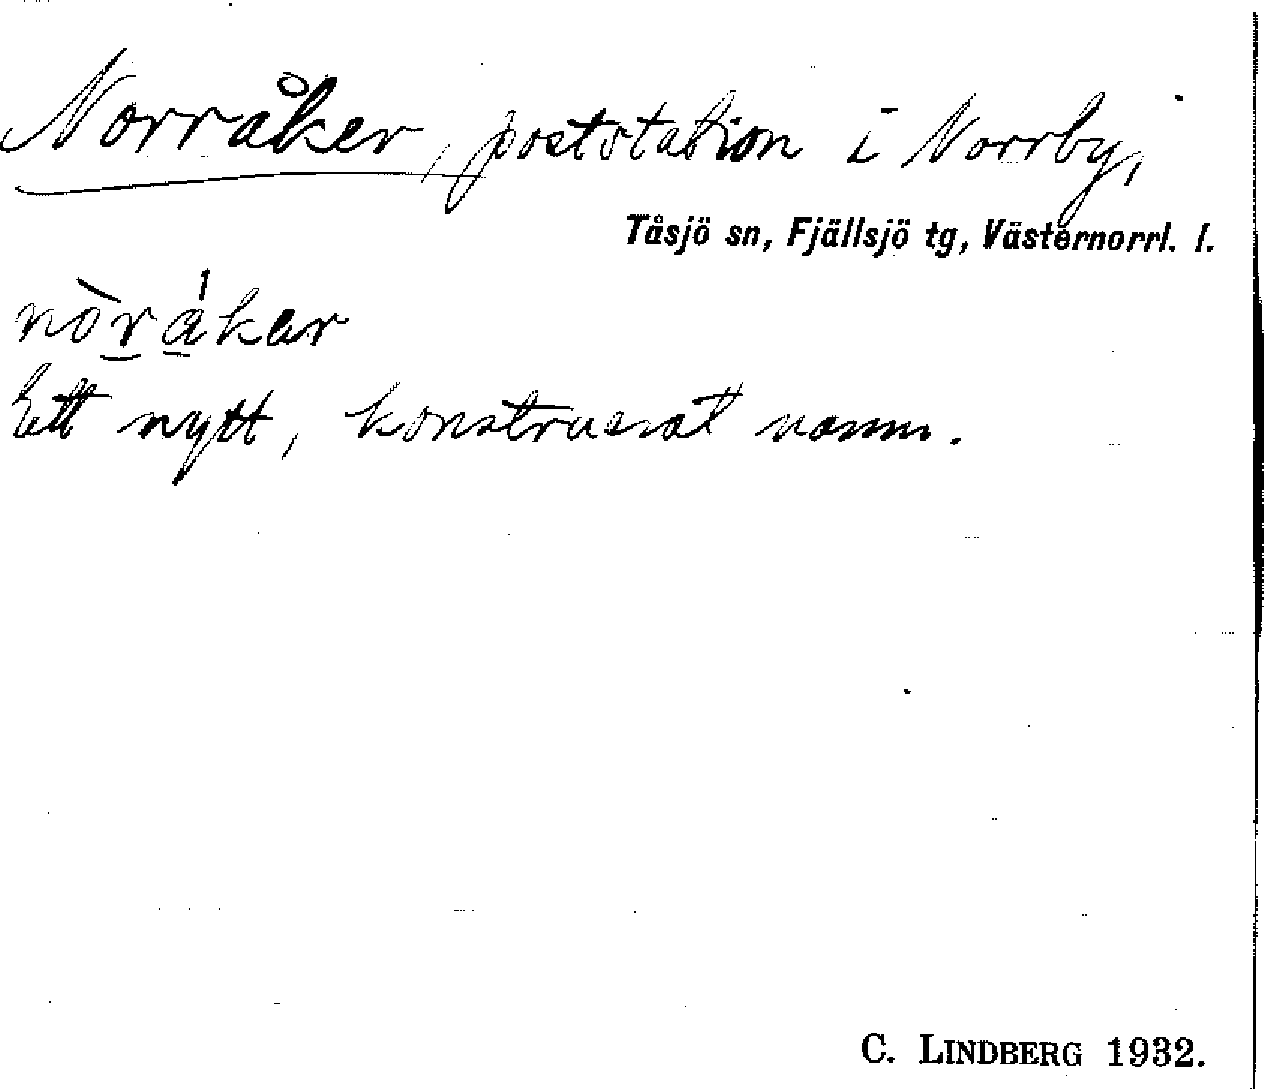 Norråker, poststation i Norrby,
Tåsjö sn, Fjällsjö tg, Västernorrl. l.
nòr̲a̲̍kar
Ett nytt, konstruerat namn.
C. LINDBERG 1932.